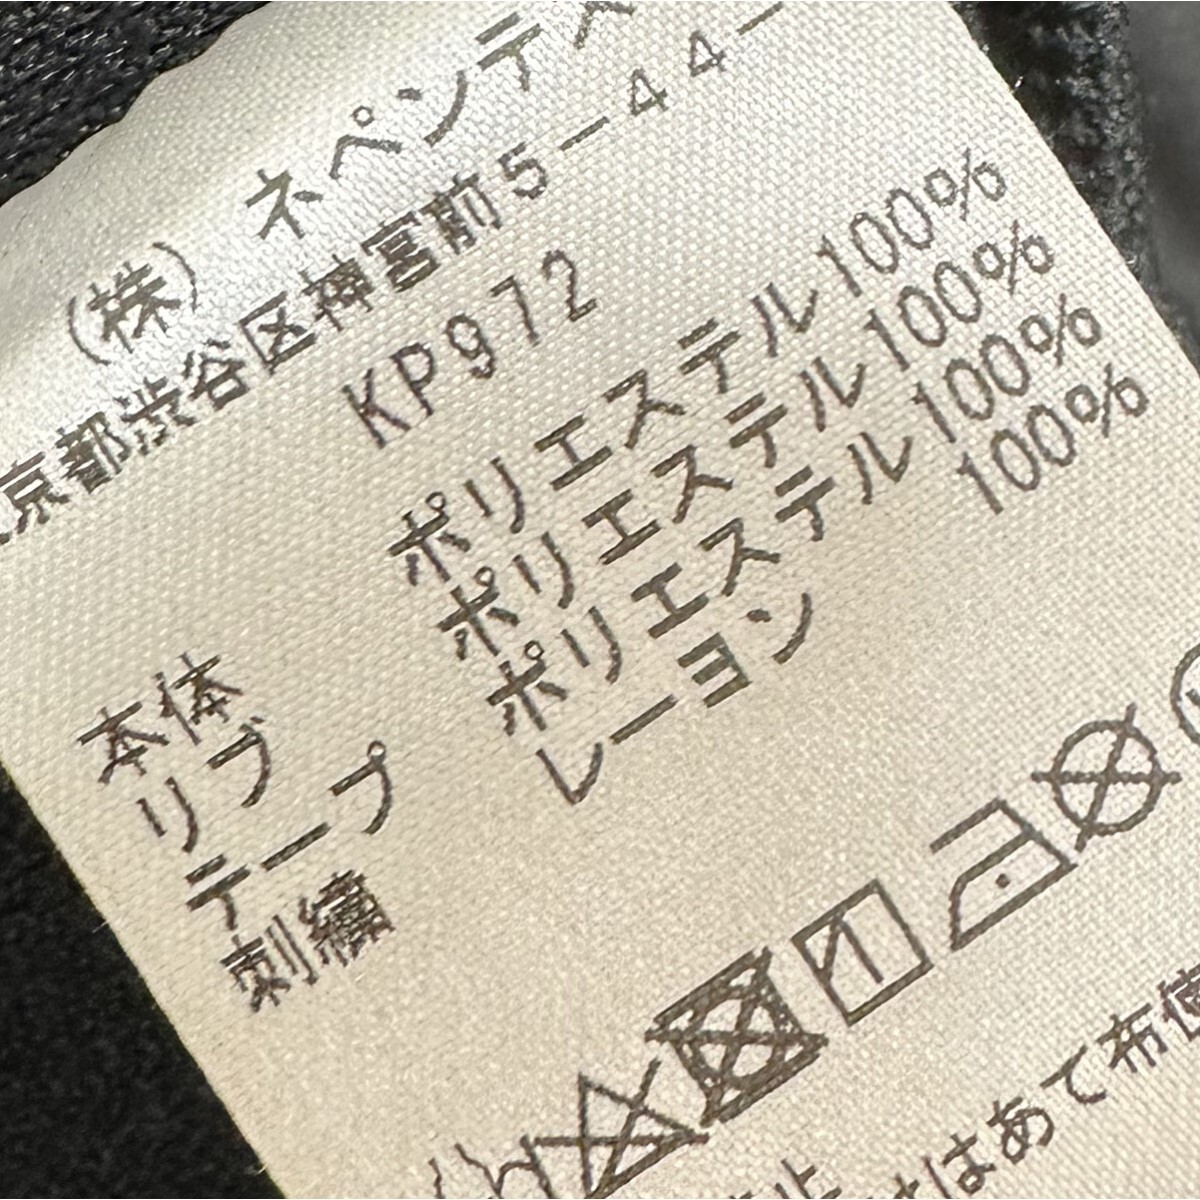 (株) ネペンテス
京都渋谷区神宮前5-44-
KP972
本体 ポリエステル100%
リブ ポリエステル100%
テープ ポリエステル100%
刺繍 レーヨン 100%
はあて布使